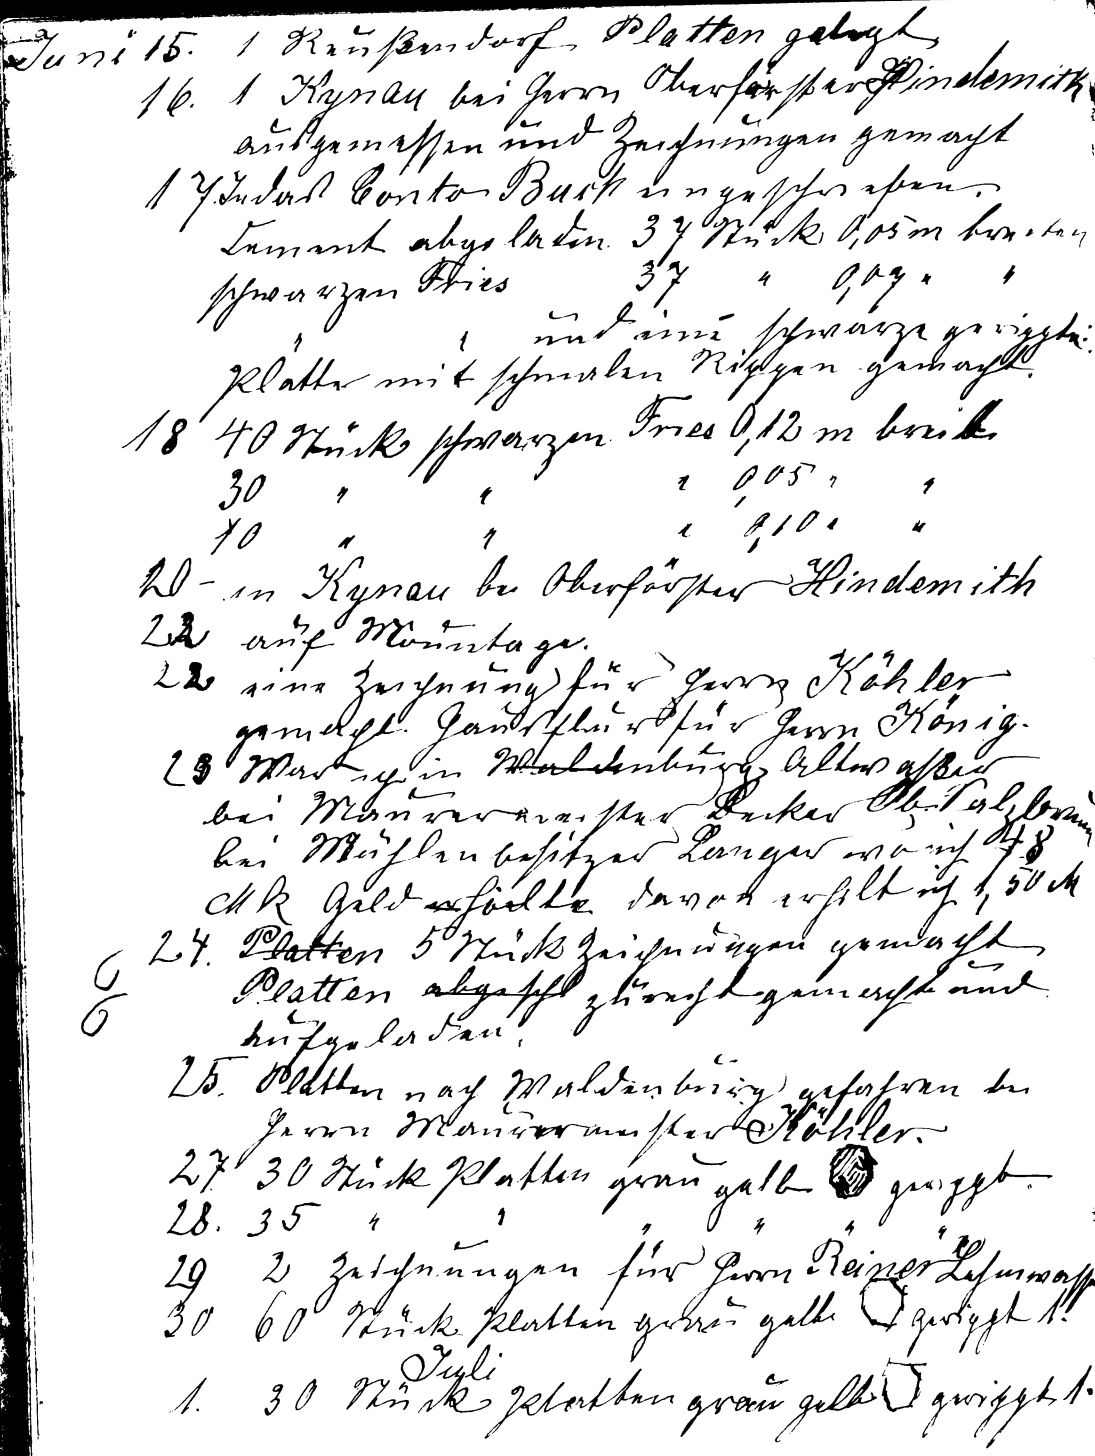 Juni 15. 1 Reußendorf Platten gelegt
16. 1 Kynau bei Herrn Oberförster Hindemith
ausgemessen und Zeichnungen gemacht
17 In das Conto Buch eingeschrieben.
Cement abgeladen. 37 Stück 0,05 m breiten
schwarzen Fries 37 " 0,07 " "
" " und eine schwarze gerippte
Platte mit schmalen Rippen gemacht.
18 40 Stück schwarzen Fries 0,12 m breit
30 " " " 0,05 " "
10 " " " 0,10 " "
20 - in Kynau bei Oberförster Hindemith
22 auf Mountage.
22 eine Zeichnung für Herrn Köhler
gemacht. Hausflur für Herrn König.
23 War ich in Waldenburg, Altwaßer
bei Maurermeister Decker Ob. Salzbrunn
bei Mühlenbesitzer Langer wo ich 78
Mk Geld erhielte davon erhilt ich 1,50 M
24. Platten 5 Stück Zeichnungen gemacht
Platten abgeschl zurecht gemacht und
aufgeladen.
25. Platten nach Waldenburg gefahren bei
Herrn Maurermeister Köhler.
27 30 Stück Platten grau gelb gerippt.
28. 35 " " " " " "
29 2 Zeichnungen für Herrn Reiner Lehmwasser
30 60 Stück Platten grau gelb gerippt 1.
Juli
1. 30 Stück Platten grau gelb gerippt 1.